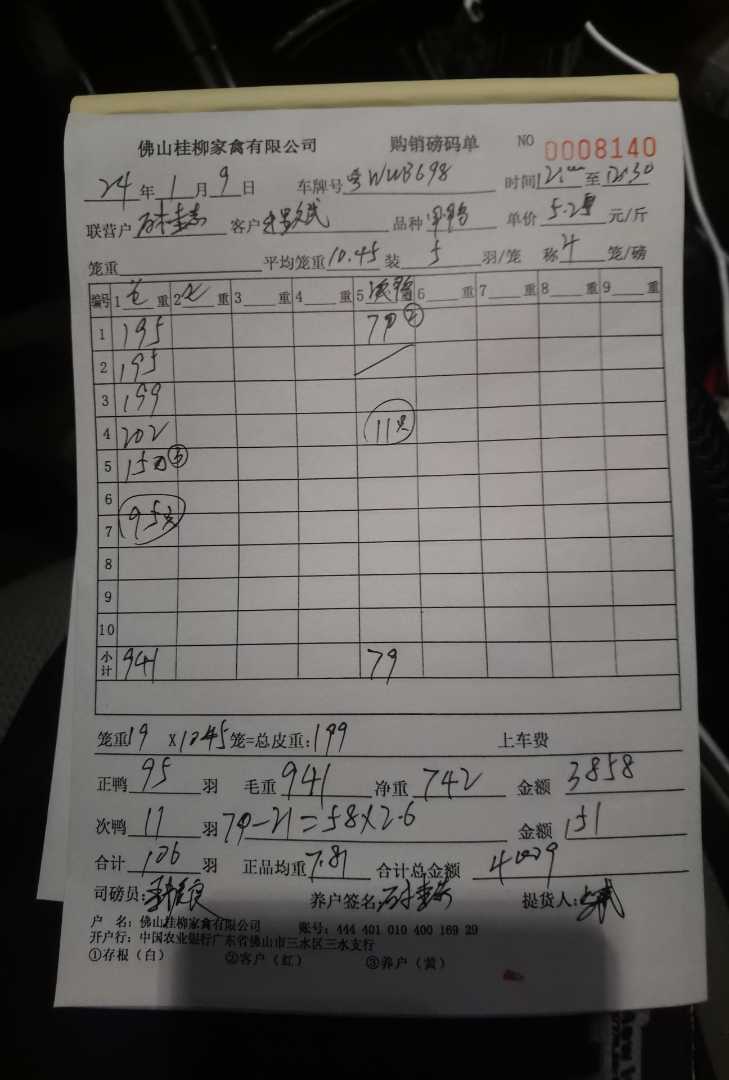 佛山桂柳家禽有限公司 购销磅码单 NO 0008140
24年1月9日 车牌号粤WWB698 时间 至
联营户 客户 品种 单价5.2 元/斤
笼重 平均笼重10.45装5羽/笼 称4笼/磅
编号 1毛重 2 重 3 重 4 重 5次鸭重 6 重 7 重 8 重 9 重
1 195 79②
2 195
3 199
4 202 11只
5 150③
6
7 95只
8
9
10
小计 941 79
笼重19 X10.45笼=总皮重:199 上车费
正鸭95羽 毛重941 净重742 金额3858
次鸭11羽79-21=58X2.6 金额151
合计106羽 正品均重7.81 合计总金额4009
司磅员: 养户签名: 提货人:
户 名:佛山桂柳家禽有限公司 账号:444 401 010 400 169 29
开户行:中国农业银行广东省佛山市三水区三水支行
①存根(白) ②客户(红) ③养户(黄)